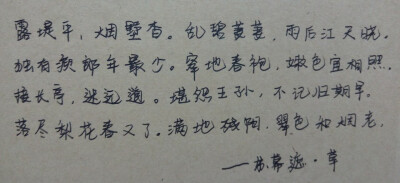 露堤平，烟墅杳。乱碧萋萋，雨后江天晓。
独有庾郎年最少。窣地春袍，嫩色宜相照。
接长亭，迷远道。堪怨王孙，不记归期早。
落尽梨花春又了。满地残阳，翠色和烟老。
——苏幕遮·草